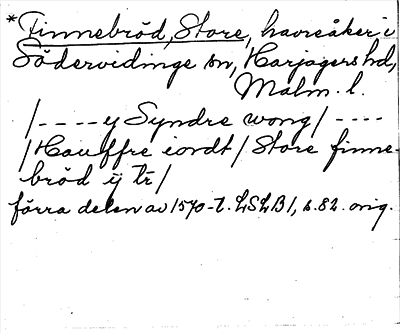 *Finnebröd, Store, havreåker i
Södervidinge sn, Harjagers hd,
Malm. l.
/----y Syndre wong/----
/Hauffre iordt/Store finne-
bröd ij tr/
förra delen av 1570-t. LSLB1, s. 82. orig.